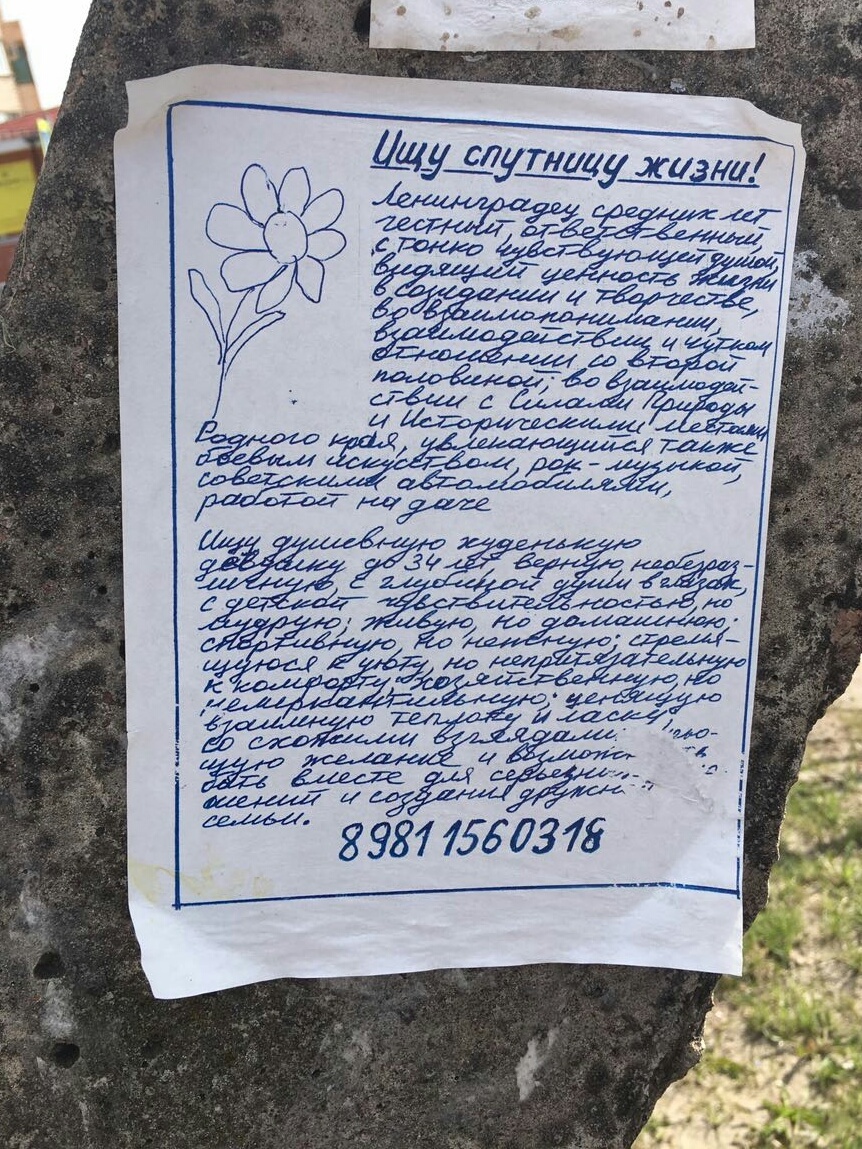 Ищу спутницу жизни!
Ленинградец средних лет
честный, ответственный,
с тонко чувствующей душой,
видящий ценность жизни
в созидании и творчестве,
во взаимопонимании,
взаимодействии и чутком
отношении со второй
половиной; во взаимодей-
ствии с Силами Природы
и Историческими местами
Родного края, увлекающийся также
боевым искусством, рок-музыкой,
советскими автомобилями,
работой на даче
Ищу душевную худенькую
девушку до 34 лет верную, небезраз-
личную, с глубиной души в глазах,
с детской чувствительностью, но
мудрую; живую, но домашнюю;
спортивную, но нежную; стремя-
щуюся к уюту, но непритязательную
к комфорту; хозяйственную, но
немеркантильную; ценящую
взаимную теплоту и ласку,
со схожими взглядами
щую желание и
быть вместе для
шений и создания
семьи.
89811560318